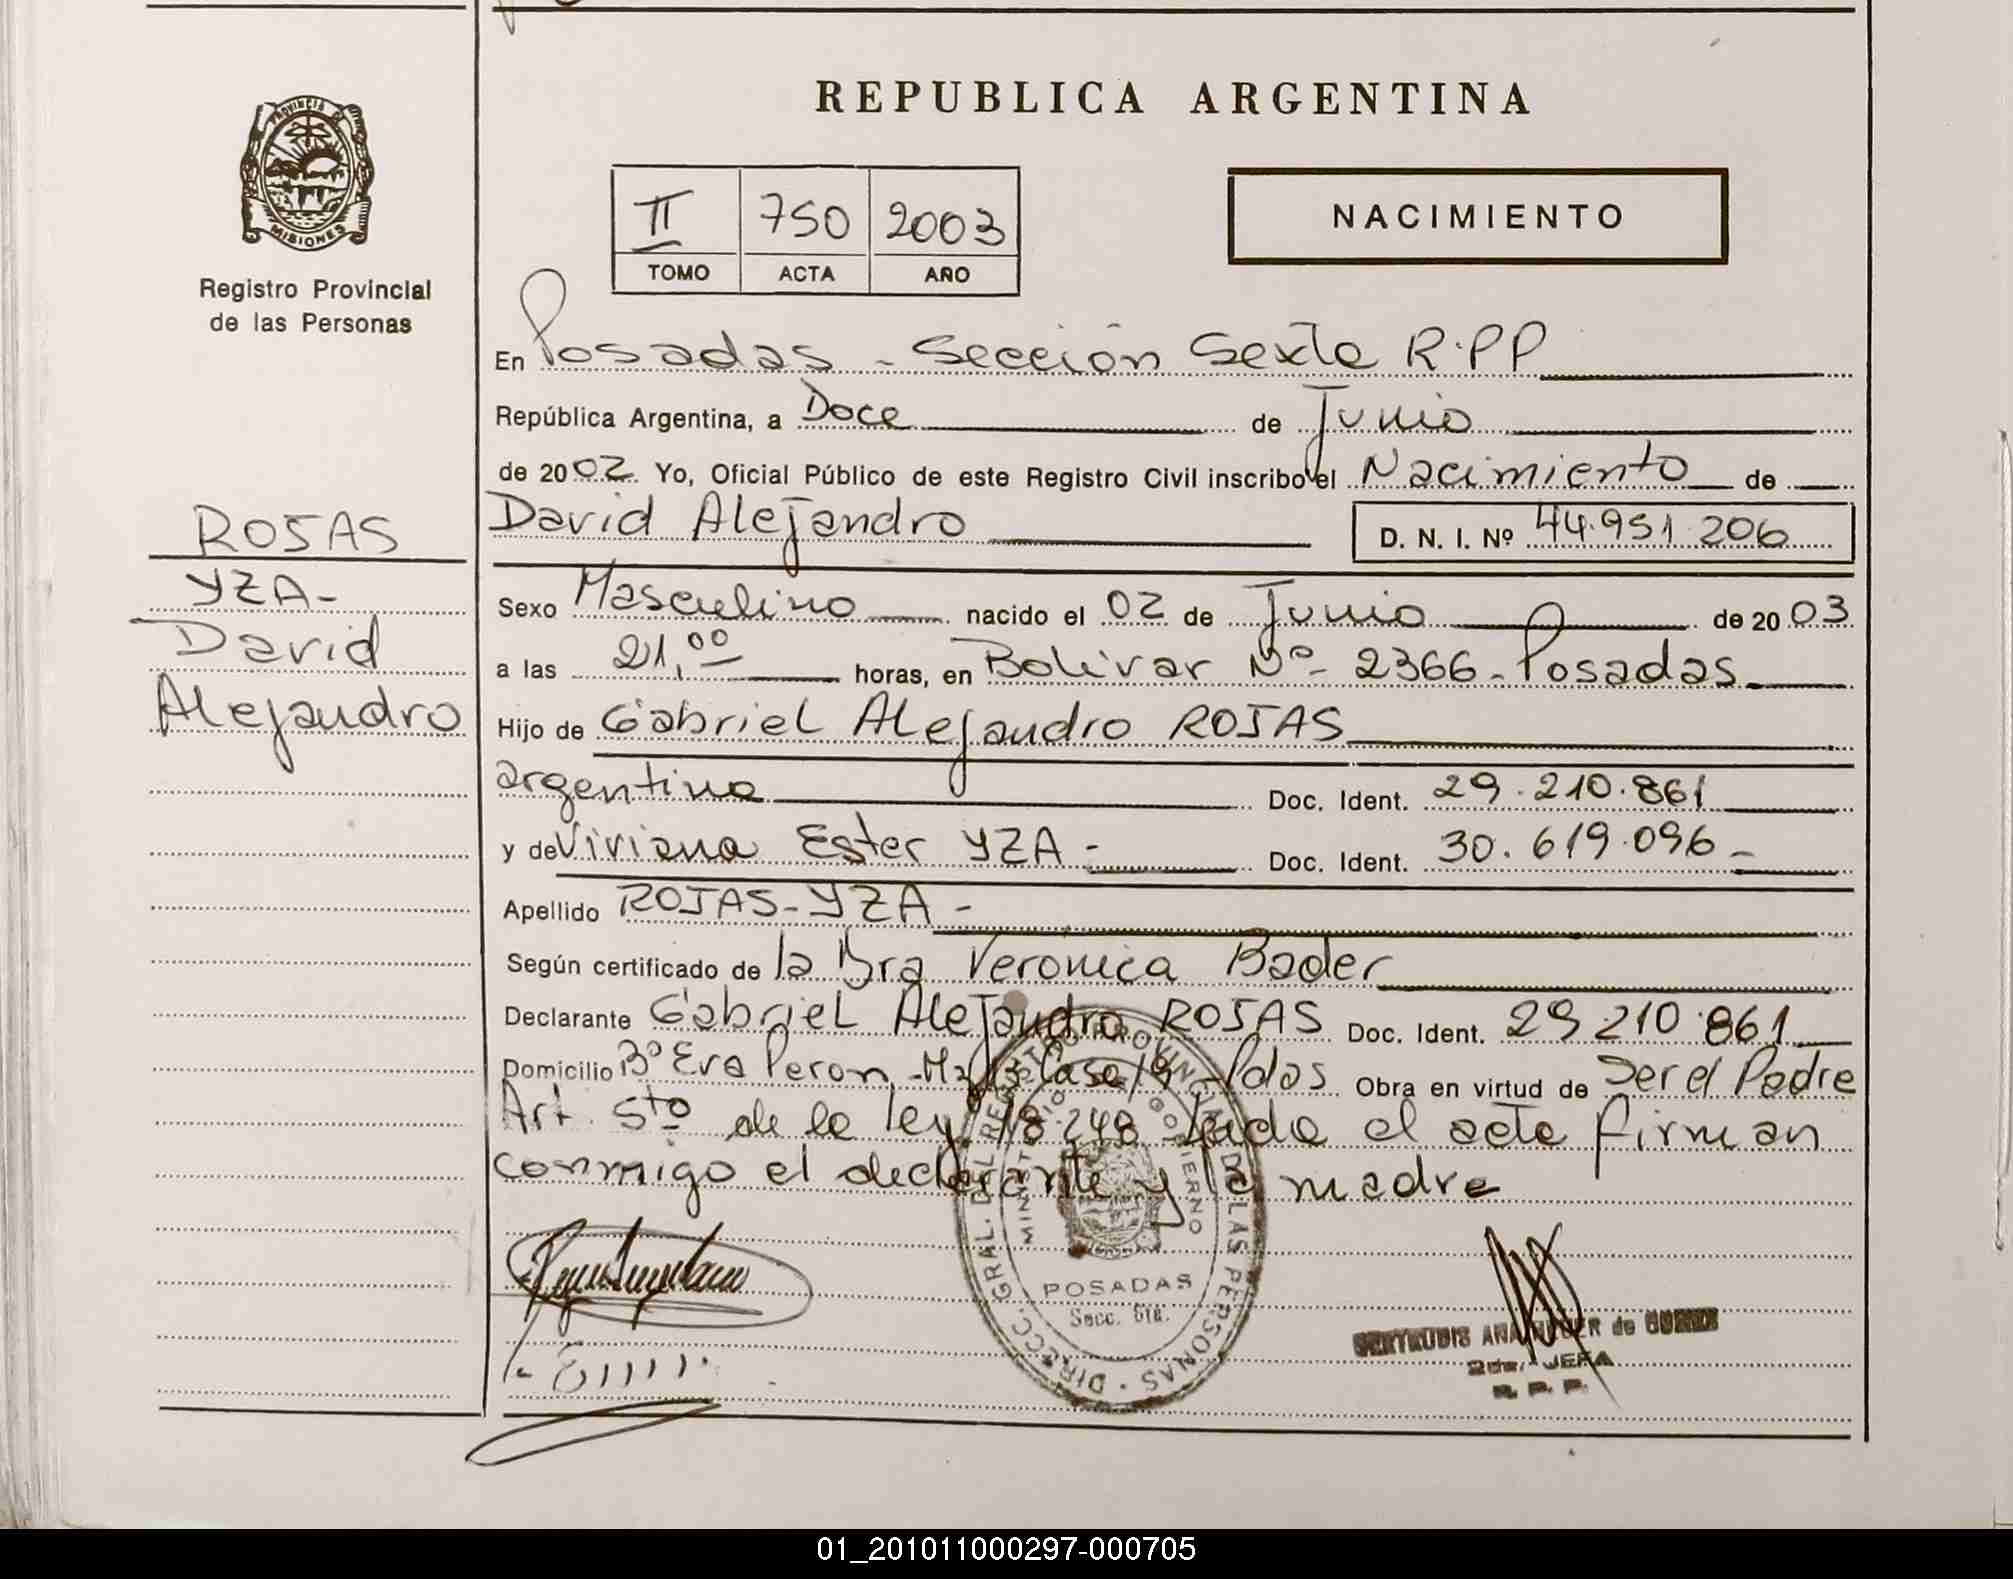 REPUBLICA ARGENTINA
PROVINCIA DE
MISIONES
Registro Provincial
de las Personas
II 750 2003
TOMO ACTA AÑO
NACIMIENTO
En Posadas - Sección Sexta R.PP
República Argentina, a Doce de Junio
de 2002 Yo, Oficial Público de este Registro Civil inscribo el Nacimiento de
David Alejandro D. N. I. Nº 44.951.206
ROJAS
YZA-
David
Alejandro
Sexo Masculino nacido el 02 de Junio de 2003
a las 21,00 horas, en Bolivar Nº- 2366 - Posadas
Hijo de Gabriel Alejandro ROJAS
argentino Doc. Ident. 29.210.861
y de Viviana Ester YZA - Doc. Ident. 30.619.096 -
Apellido ROJAS - YZA -
Según certificado de la Dra Veronica Bader
Declarante Gabriel Alejandro ROJAS Doc. Ident. 29 210.861
Domicilio Bº Eva Peron - Mz 13 Casa 19 - Pdas. Obra en virtud de Ser el Padre
Art. 5to de la ley 18.248 Leida el acta firman
conmigo el declarante y la madre
DIRECC. GRAL. DEL REGISTRO PROVINCIAL DE LAS PERSONAS
MINISTERIO DE GOBIERNO
POSADAS
Secc. 6ta.
GERTRUDIS ANA de
2da. JEFA
R. P. P.
01_201011000297-000705